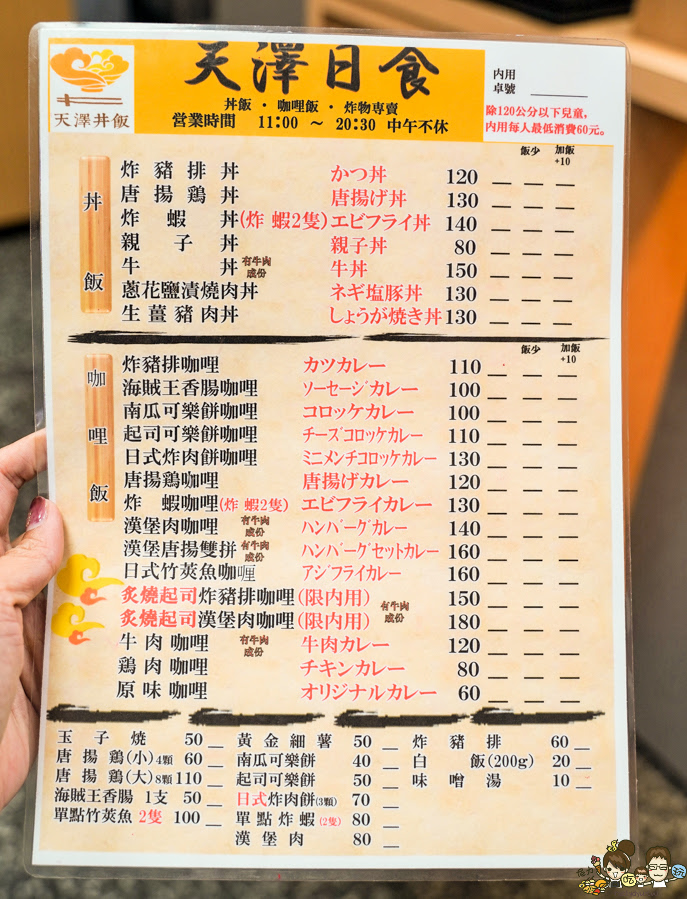 天澤丼飯
天澤日食
丼飯 · 咖哩飯 · 炸物専賣
営業時間 11:00 ～ 20:30 中午不休
内用
卓號
除120公分以下兒童,
内用每人最低消費60元。
飯少 加飯
+10
丼飯
炸豬排丼 かつ丼 120
唐揚鶏丼 唐揚げ丼 130
炸蝦丼(炸蝦2隻) エビフライ丼 140
親子丼 親子丼 80
牛丼 有牛肉成份 牛丼 150
蔥花鹽漬燒肉丼 ネギ塩豚丼 130
生薑豬肉丼 しょうが焼き丼 130
飯少 加飯
+10
咖哩飯
炸豬排咖哩 カツカレー 110
海賊王香腸咖哩 ソーセージカレー 100
南瓜可樂餅咖哩 コロッケカレー 100
起司可樂餅咖哩 チーズコロッケカレー 110
日式炸肉餅咖哩 ミニメンチコロッケカレー 130
唐揚鶏咖哩 唐揚げカレー 120
炸蝦咖哩(炸蝦2隻) エビフライカレー 130
漢堡肉咖哩 有牛肉成份 ハンバーグカレー 140
漢堡唐揚雙拼 有牛肉成份 ハンバーグセットカレー 160
日式竹莢魚咖喱 アジフライカレー 160
炙燒起司炸豬排咖哩(限内用) 150
炙燒起司漢堡肉咖哩(限内用) 有牛肉成份 180
牛肉咖哩 有牛肉成份 牛肉カレー 120
鶏肉咖哩 チキンカレー 80
原味咖哩 オリジナルカレー 60
玉子燒 50
唐揚鶏(小)4顆 60
唐揚鶏(大)8顆 110
海賊王香腸 1支 50
單點竹莢魚 2隻 100
黃金細薯 50
南瓜可樂餅 40
起司可樂餅 50
日式炸肉餅(3顆) 70
單點炸蝦(2隻) 80
漢堡肉 80
炸豬排 60
白飯(200g) 20
味噌湯 10